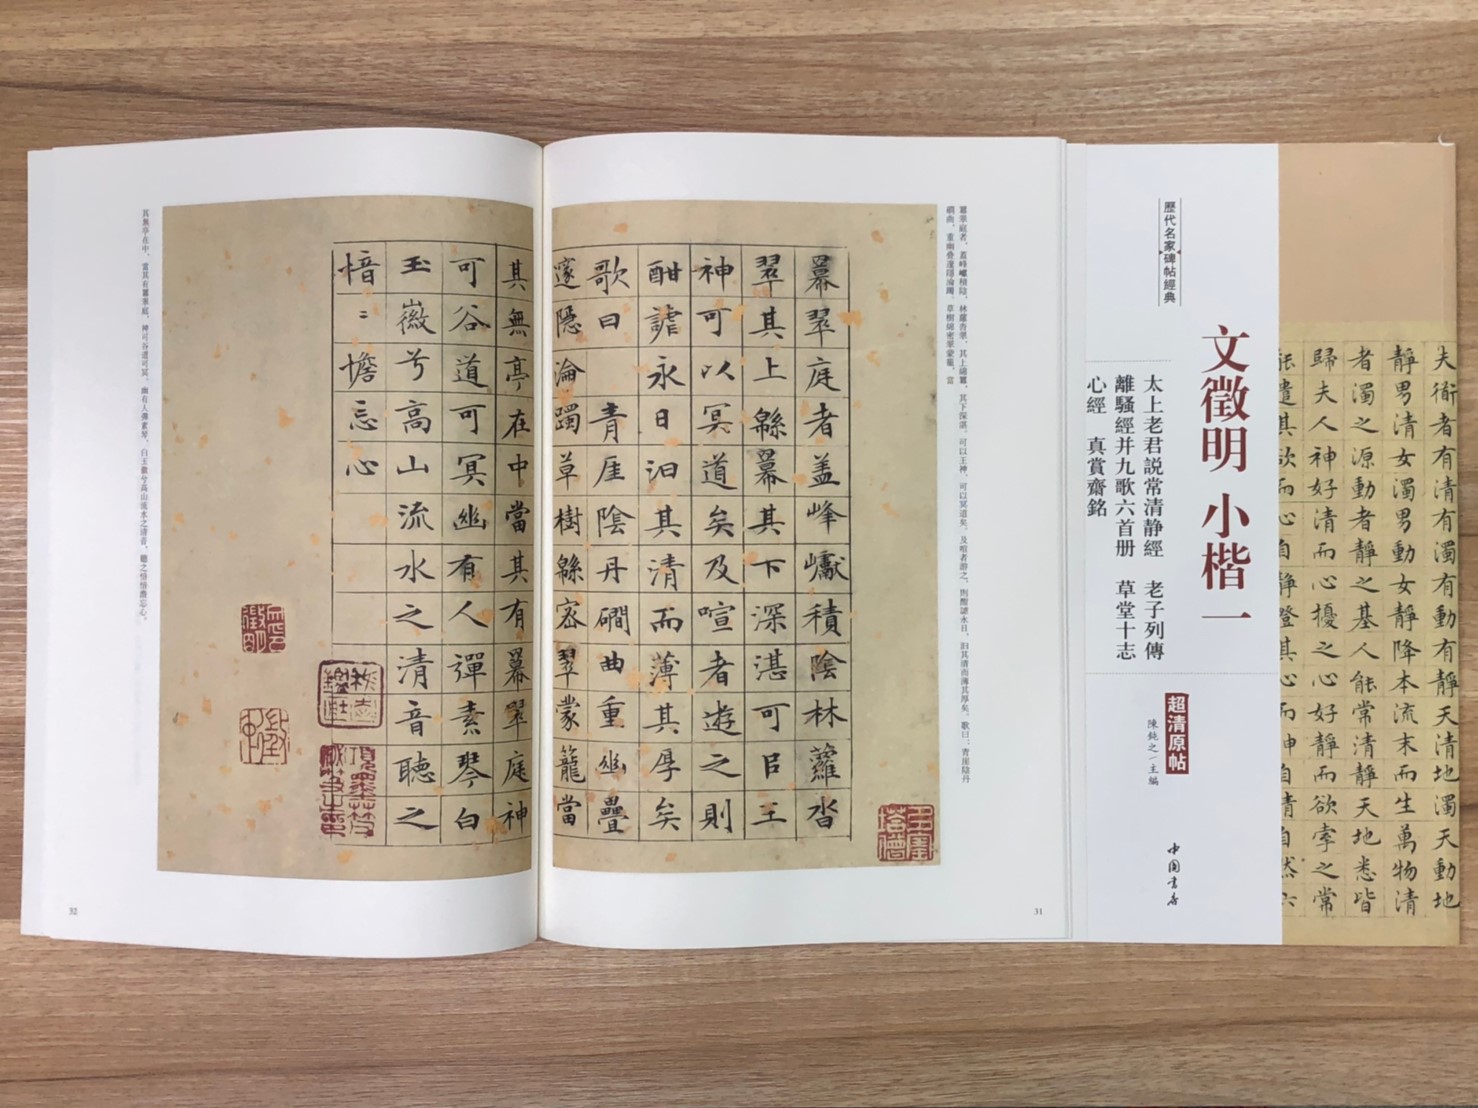 夫衜者有清有濁有動有靜天清地濁天動地
靜男清女濁男動女靜降本流末而生萬物清
者濁之源動者靜之基人能常清靜天地悉皆
歸夫人神好清而心擾之心好靜而欲牽之常
能遣其欲而心自靜澄其心而神自清自然六
歷代名家碑帖經典
文徵明 小楷一
太上老君説常清静經 老子列傳
離騷經并九歌六首册 草堂十志
心經 真賞齋銘
超清原帖
陳鈍之/主編
中国書店
羃翠庭者、蓋峰巘積陰、林蘿沓翠、其上綿羃、其下深湛。可以王神、可以冥道矣。及喧者游之、則酣謔永日、汩其清而薄其厚矣。歌曰：青崖陰丹
磵曲、重幽疊邃隱淪躅、草樹綿密翠蒙籠、當
羃翠庭者盖峰巘積陰林蘿沓
翠其上緜羃其下深湛可㠯王
神可以冥道矣及喧者遊之則
酣謔永日汩其清而薄其厚矣
歌曰 青厓陰丹磵曲重幽疊
邃隱淪躅草樹緜密翠蒙籠當
31
其無亭在中當其有羃翠庭神
可谷道可冥幽有人彈素琴白
玉徽兮高山流水之清音聽之
愔〻憺忘心
其無亭在中、當其有羃翠庭、神可谷道可冥。幽有人彈素琴、白玉徽兮高山流水之清音、聽之愔愔憺忘心。
32